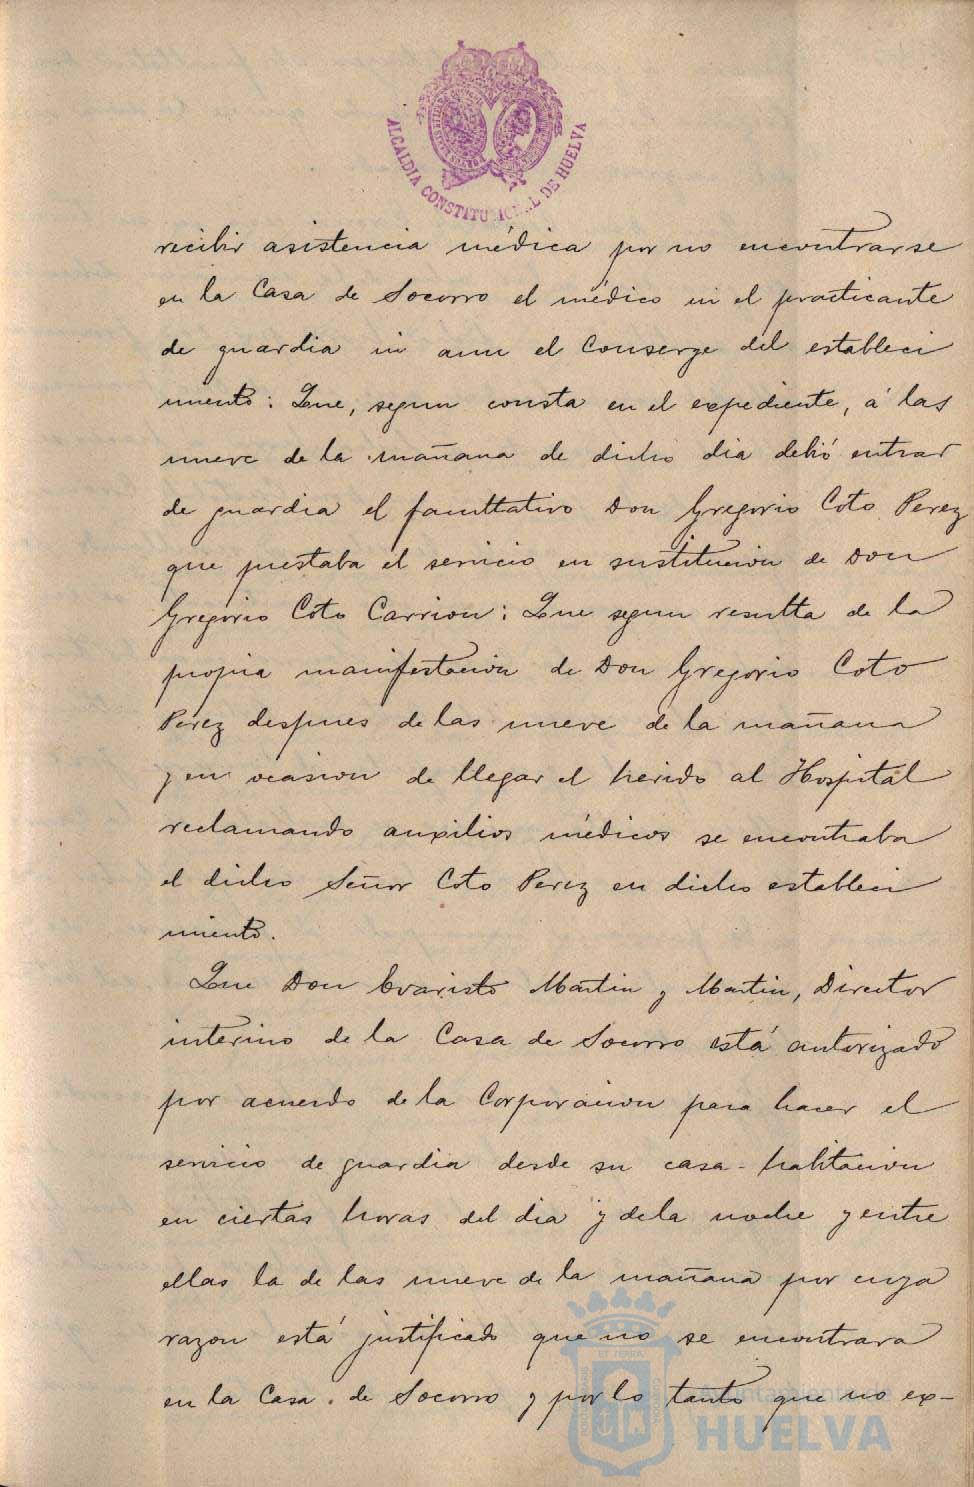 ALCALDIA CONSTITUCIONAL DE HUELVA
recibir asistencia médica por no encontrarse
en la Casa de Socorro el médico ni el practicante
de guardia ni aun el Conserge del estableci
miento: Que, segun consta en el expediente, á las
nueve de la mañana de dicho dia debió entrar
de guardia el facultativo Don Gregorio Coto Perez
que prestaba el servicio en sustitucion de Don
Gregorio Coto Carrion: Que segun resulta de la
propia manifestacion de Don Gregorio Coto
Perez despues de las nueve de la mañana
y en ocasion de llegar el herido al Hospital
reclamando auxilios médicos se encontraba
el dicho Señor Coto Perez en dicho estableci
miento.
Que Don Evaristo Martin y Martin, Director
interino de la Casa de Socorro está autorizado
por acuerdo de la Corporacion para hacer el
servicio de guardia desde su casa-habitacion
en ciertas horas del dia y de la noche y entre
ellas la de las nueve de la mañana por cuya
razon está justificado que no se encontrara
en la Casa de Socorro y por lo tanto que no ex-
Ayuntamiento de
HUELVA